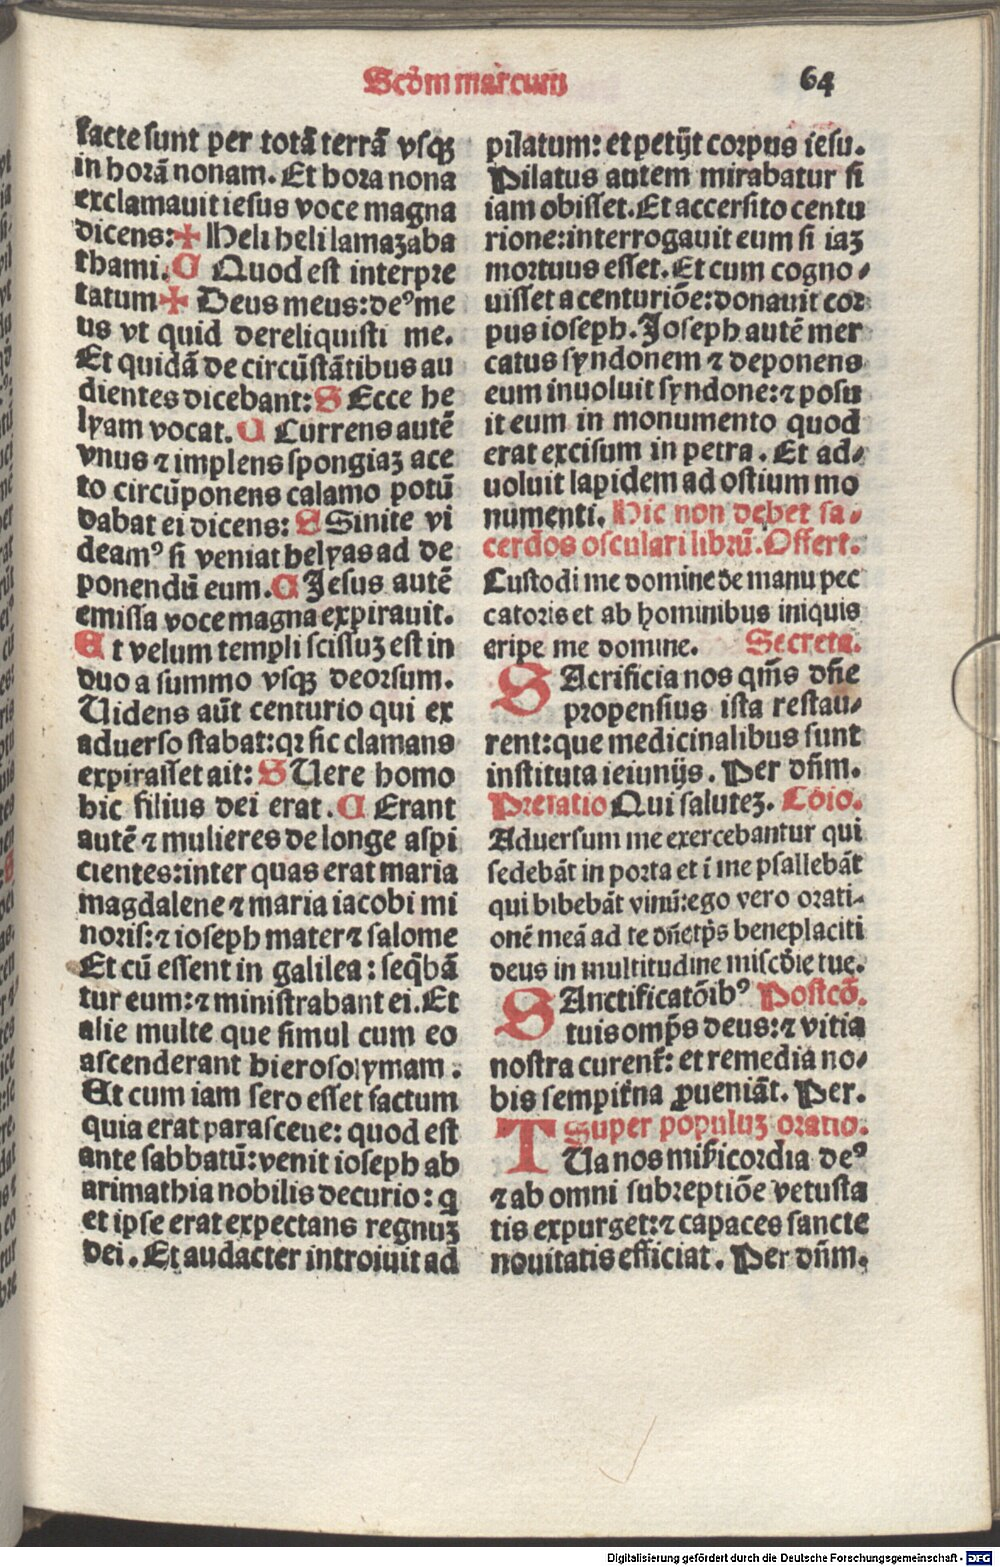 Scd̄m marcum 64
facte sunt per totā terrā vsqꝫ
in horā nonam. Et hora nona
exclamauit iesus voce magna
dicens:✠ Heli heli lamazaba
thami. C Quod est interpre
tatum ✠ Deus meus: deꝰ me
us vt quid dereliquisti me.
Et quidā de circūstātibus au
dientes dicebant: S Ecce he
lyam vocat. C Currens autē
vnus ⁊ implens spongiaꝫ ace
to circūponens calamo potū
dabat ei dicens: S Sinite vi
deamꝰ si veniat helyas ad de
ponendū eum. C Jesus autē
emissa voce magna expirauit.
Et velum templi scissuꝫ est in
duo a summo vsqꝫ deorsum.
Uidens aūt centurio qui ex
aduerso stabat: qꝛ sic clamans
expirasset ait: S Uere homo
hic filius dei erat. C Erant
autē ⁊ mulieres de longe aspi
cientes: inter quas erat maria
magdalene ⁊ maria iacobi mi
noris: ⁊ ioseph mater ⁊ salome
Et cū essent in galilea: seqb̄ā
tur eum: ⁊ ministrabant ei. Et
alie multe que simul cum eo
ascenderant hierosolymam.
Et cum iam sero esset factum
quia erat parasceue: quod est
ante sabbatū: venit ioseph ab
arimathia nobilis decurio: q
et ipse erat expectans regnuꝫ
dei. Et audacter introiuit ad
pilatum: et petijt corpus iesu.
Pilatus autem mirabatur si
iam obisset. Et accersito centu
rione: interrogauit eum si iaꝫ
mortuus esset. Et cum cogno⸗
uisset a centuriōe: donauit coꝛ
pus ioseph. Joseph autē mer
catus syndonem ⁊ deponens
eum inuoluit syndone: ⁊ posu
it eum in monumento quod
erat excisum in petra. Et ad⸗
uoluit lapidem ad ostium mo
numenti. Hic non debet sa⸗
cerdos osculari librū. Offert.
Custodi me domine de manu pec
catoris et ab hominibus iniquis
eripe me domine. Secreta.
SAcrificia nos qm̄s dn̄e
propensius ista restau⸗
rent: que medicinalibus sunt
instituta ieiunijs. Per dn̄m.
Prefatio Qui saluteꝫ. Cōio.
Aduersum me exercebantur qui
sedebāt in porta et ī me psallebāt
qui bibebāt vinū: ego vero orati⸗
onē meā ad te dn̄e tp̄s beneplaciti
deus in multitudine misc̄die tue.
SAnctificatōibꝰ Postcō.
tuis omp̄s deus: ⁊ vitia
nostra curent̄: et remedia no⸗
bis sempit̄na ꝓueniāt. Per.
Super populuꝫ oratio.
TUa nos mis̄icordia deꝰ
⁊ ab omni subreptiōe vetusta
tis expurget: ⁊ capaces sancte
nouitatis efficiat. Per dn̄m.
Digitalisierung gefördert durch die Deutsche Forschungsgemeinschaft - DFG